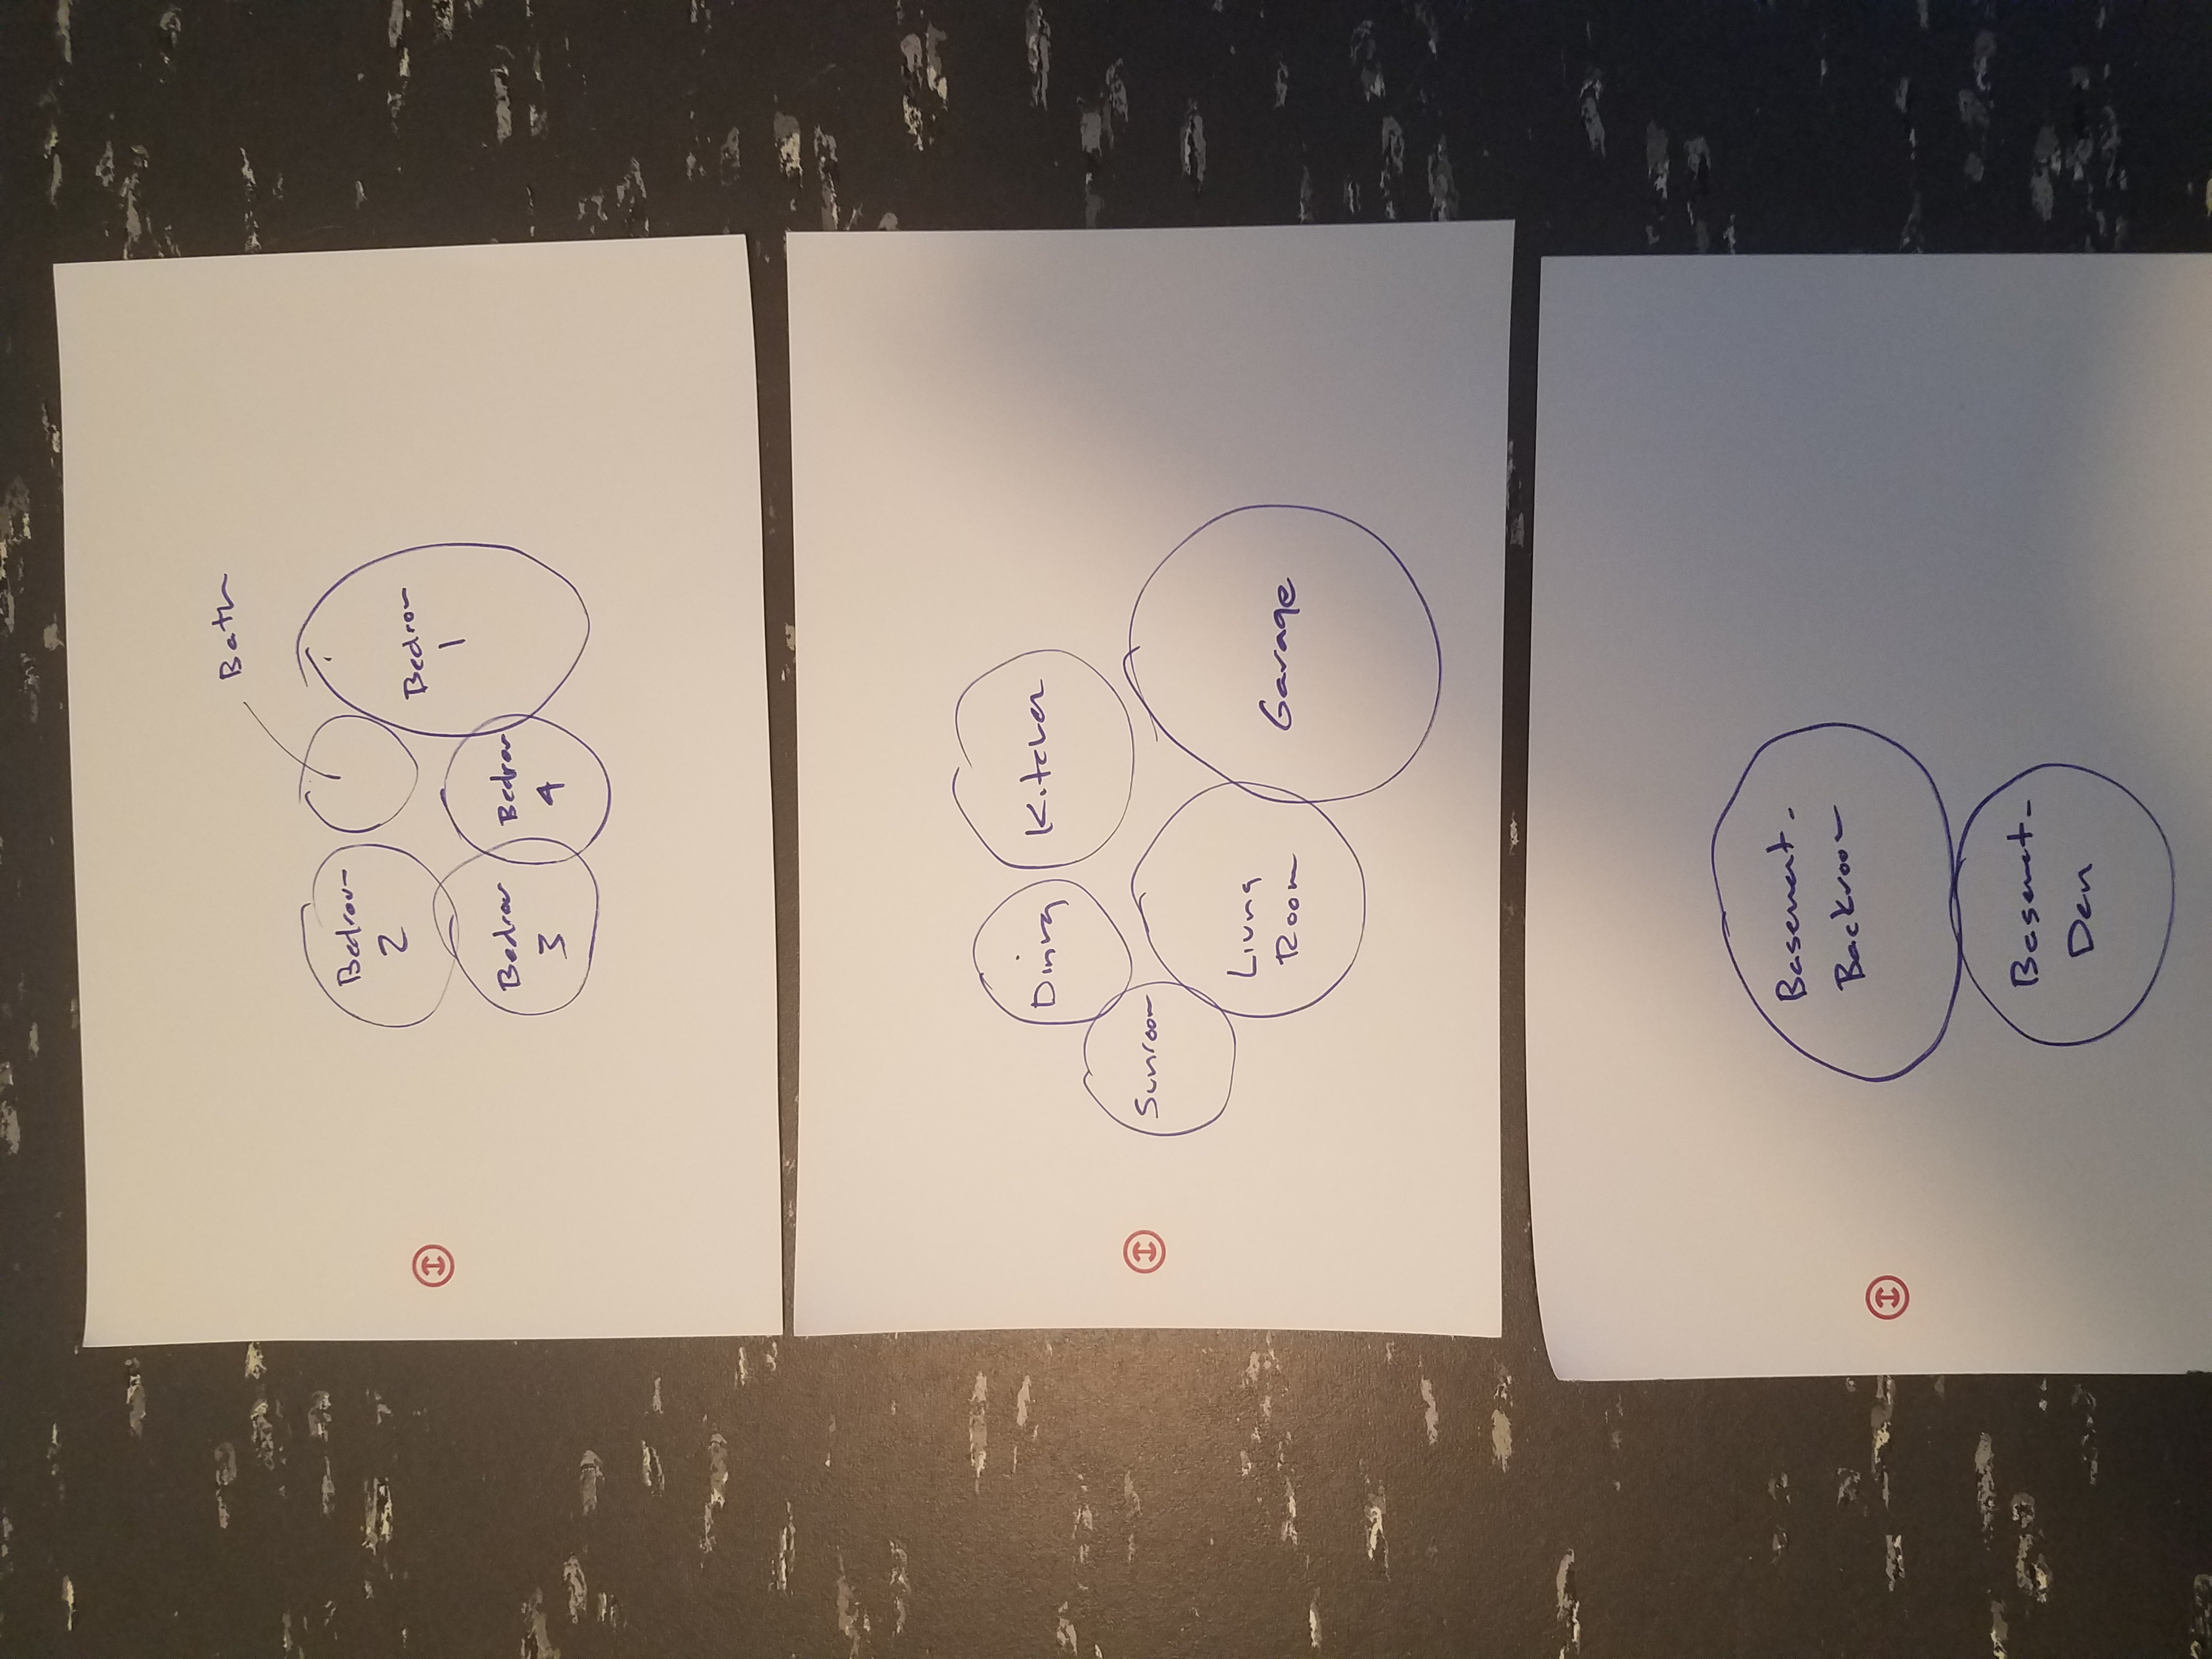 Bath
Bedroom
2
Bedroom
1
Bedroom
3
Bedroom
4
Dining
Kitchen
Sunroom
Living
Room
Garage
Basement -
Backroom
Basement -
Den